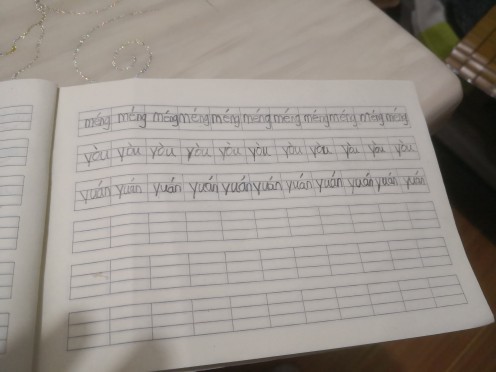 méng méng méng méng méng méng méng méng méng méng méng
yòu yòu yòu yòu yòu yòu yòu yòu yòu yòu yòu
yuán yuán yuán yuán yuán yuán yuán yuán yuán yuán yuán